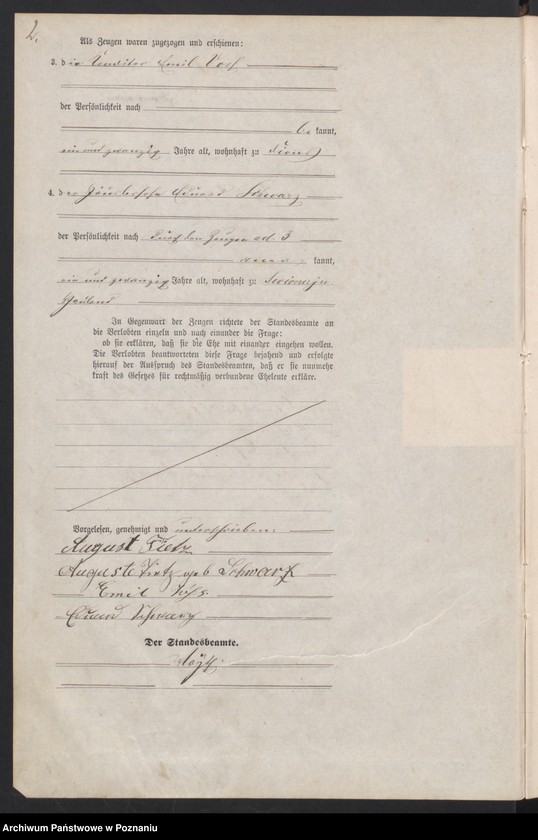 2.
Als Zeugen waren zugezogen und erschienen:
3. der Konditor Emil
der Persönlichkeit nach
be kannt,
ein und zwanzig Jahre alt, wohnhaft zu
4. der Eduard Schwarz
der Persönlichkeit nach durch den Zeugen ad. 3
kannt,
ein und zwanzig Jahre alt, wohnhaft zu
Hauland
In Gegenwart der Zeugen richtete der Standesbeamte an
die Verlobten einzeln und nach einander die Frage:
ob sie erklären, daß sie die Ehe mit einander eingehen wollen.
Die Verlobten beantworteten diese Frage bejahend und erfolgte
hierauf der Ausspruch des Standesbeamten, daß er sie nunmehr
kraft des Gesetzes für rechtmäßig verbundene Eheleute erkläre.
Vorgelesen, genehmigt und unterschrieben:
August Fietz
Auguste Fietz geb Schwarz
Emil
Eduard Schwarz
Der Standesbeamte.
Archiwum Państwowe w Poznaniu